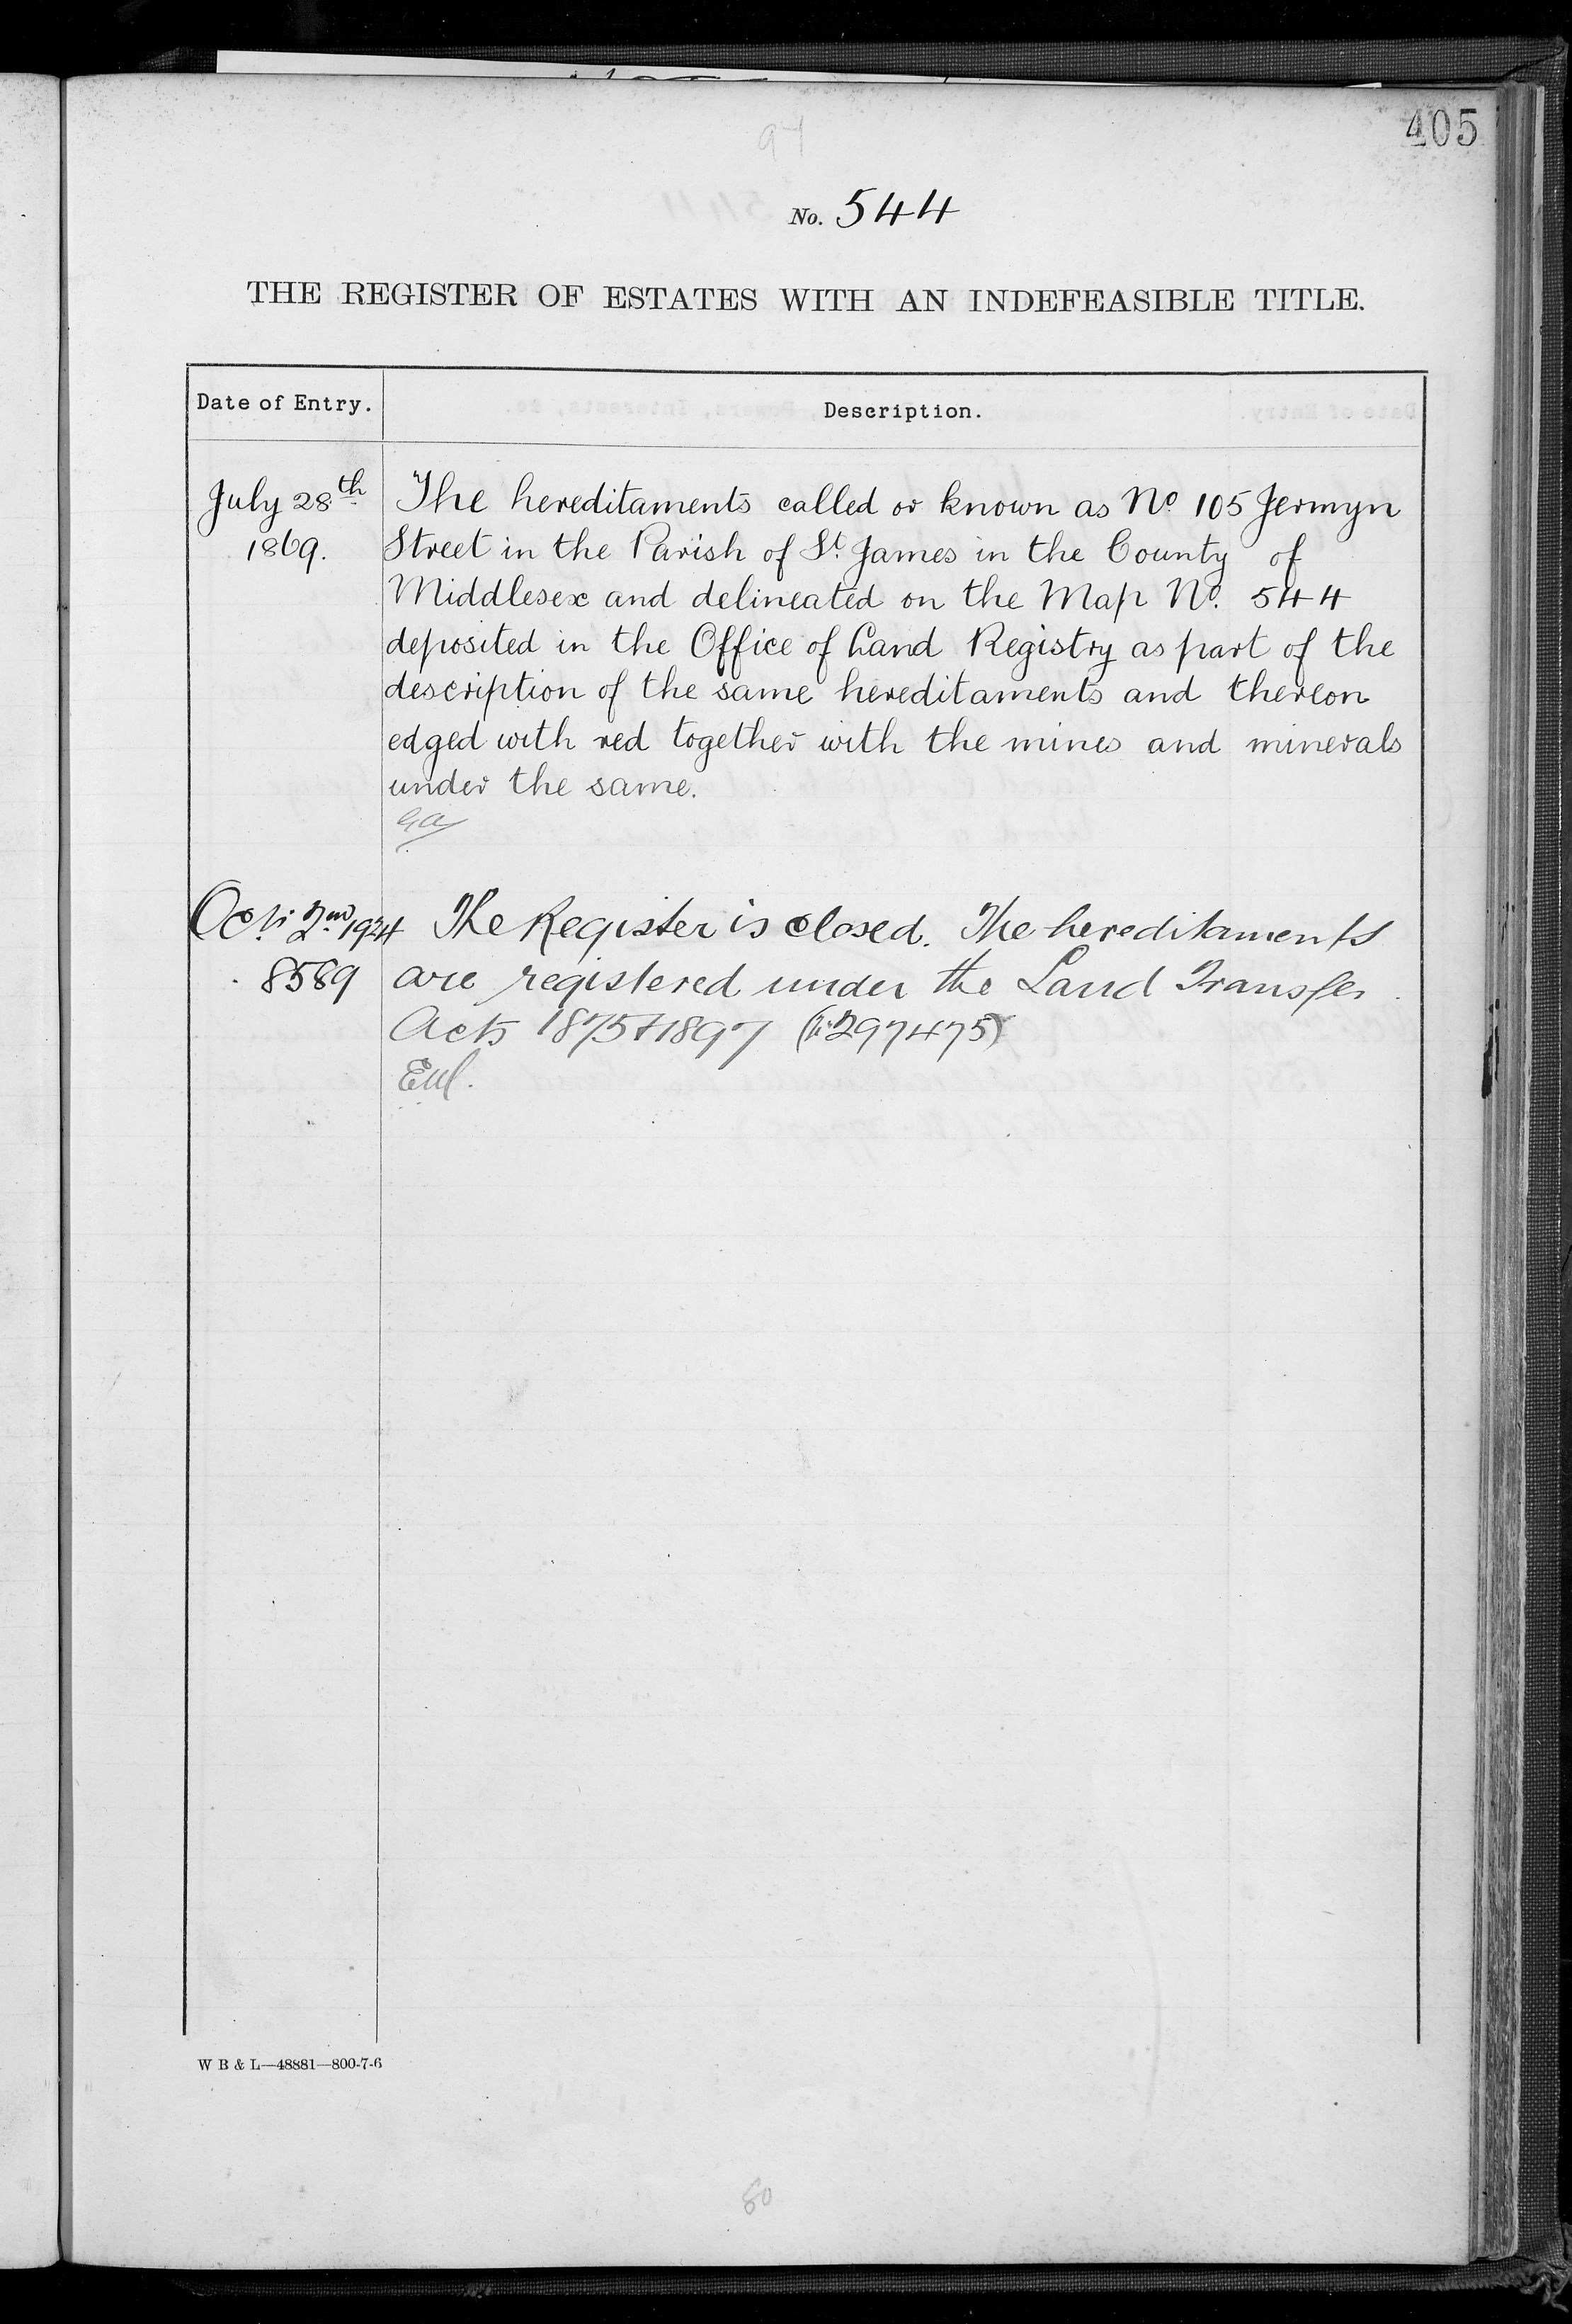 405
No. 544
THE REGISTER OF ESTATES WITH AN INDEFEASIBLE TITLE.
Date of Entry.
Description.
July 28th
1869.
The hereditaments called or known as No 105 Jermyn
Street in the Parish of St. James in the County of
Middlesex and delineated on the Map No. 544
deposited in the Office of Land Registry as part of the
description of the same hereditaments and thereon
edged with red together with the mines and minerals
under the same.
Oct: 2nd 1924
8589
The Register is closed. The hereditaments
are registered under the Land Transfer
Acts 1875 & 1897 (297475)
W B & L—48881—800-7-6
80